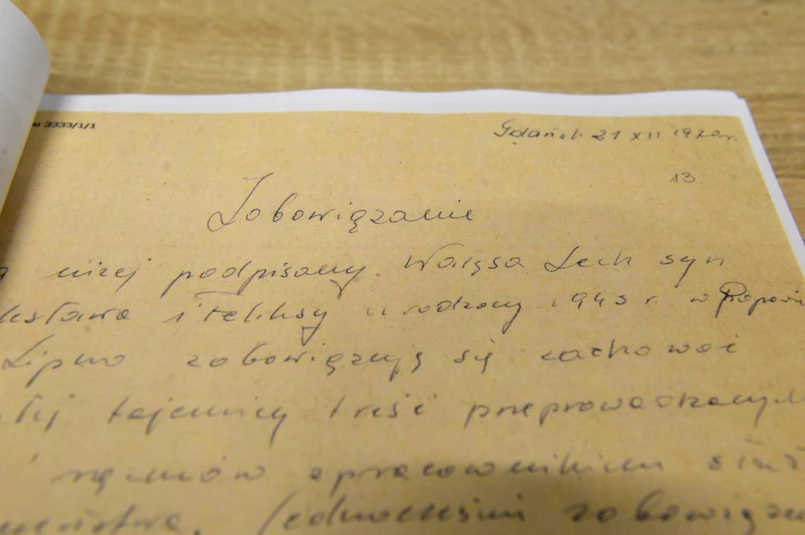 3333/1/1
Gdańsk 21 XII 1970r.
13
Zobowiązanie
niżej podpisany. Wałęsa Lech syn
i Feliksy urodzony 1943 r. w Popowi
Lipno zobowiązuję się zachować
tajemnicy treść przeprowadzonych
z pracownikiem
Jednocześni zobowiązu